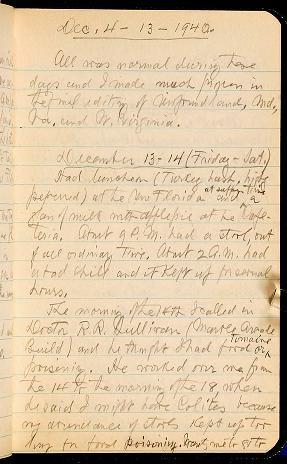 Dec. 4 - 13 - 1940.
All was normal during these
days and I made much progress in
the final editing of Newfoundland, Md.,
Va. and W. Virginia.
December 13-14 (Friday - Sat.)
Had luncheon (Turkey hash,
peppered) at the New Florida and at supper had a
glass of milk with apple pie at the Cafe-
teria. About 9 P.M. had a stool, out
of all ordinary time. About 2 A.M. had
a bad chill and it kept up for several
hours.
The morning of the 14th I called in
Doctor R. R. Sullivan (Marble Arcade
Build) and he thought I had food or Ptomaine
poisoning. He worked over me from
the 14 to the morning of the 18, when
he said I might have Colitis because
my abundance of stools kept up too
long for food poisoning. Wants me to go to